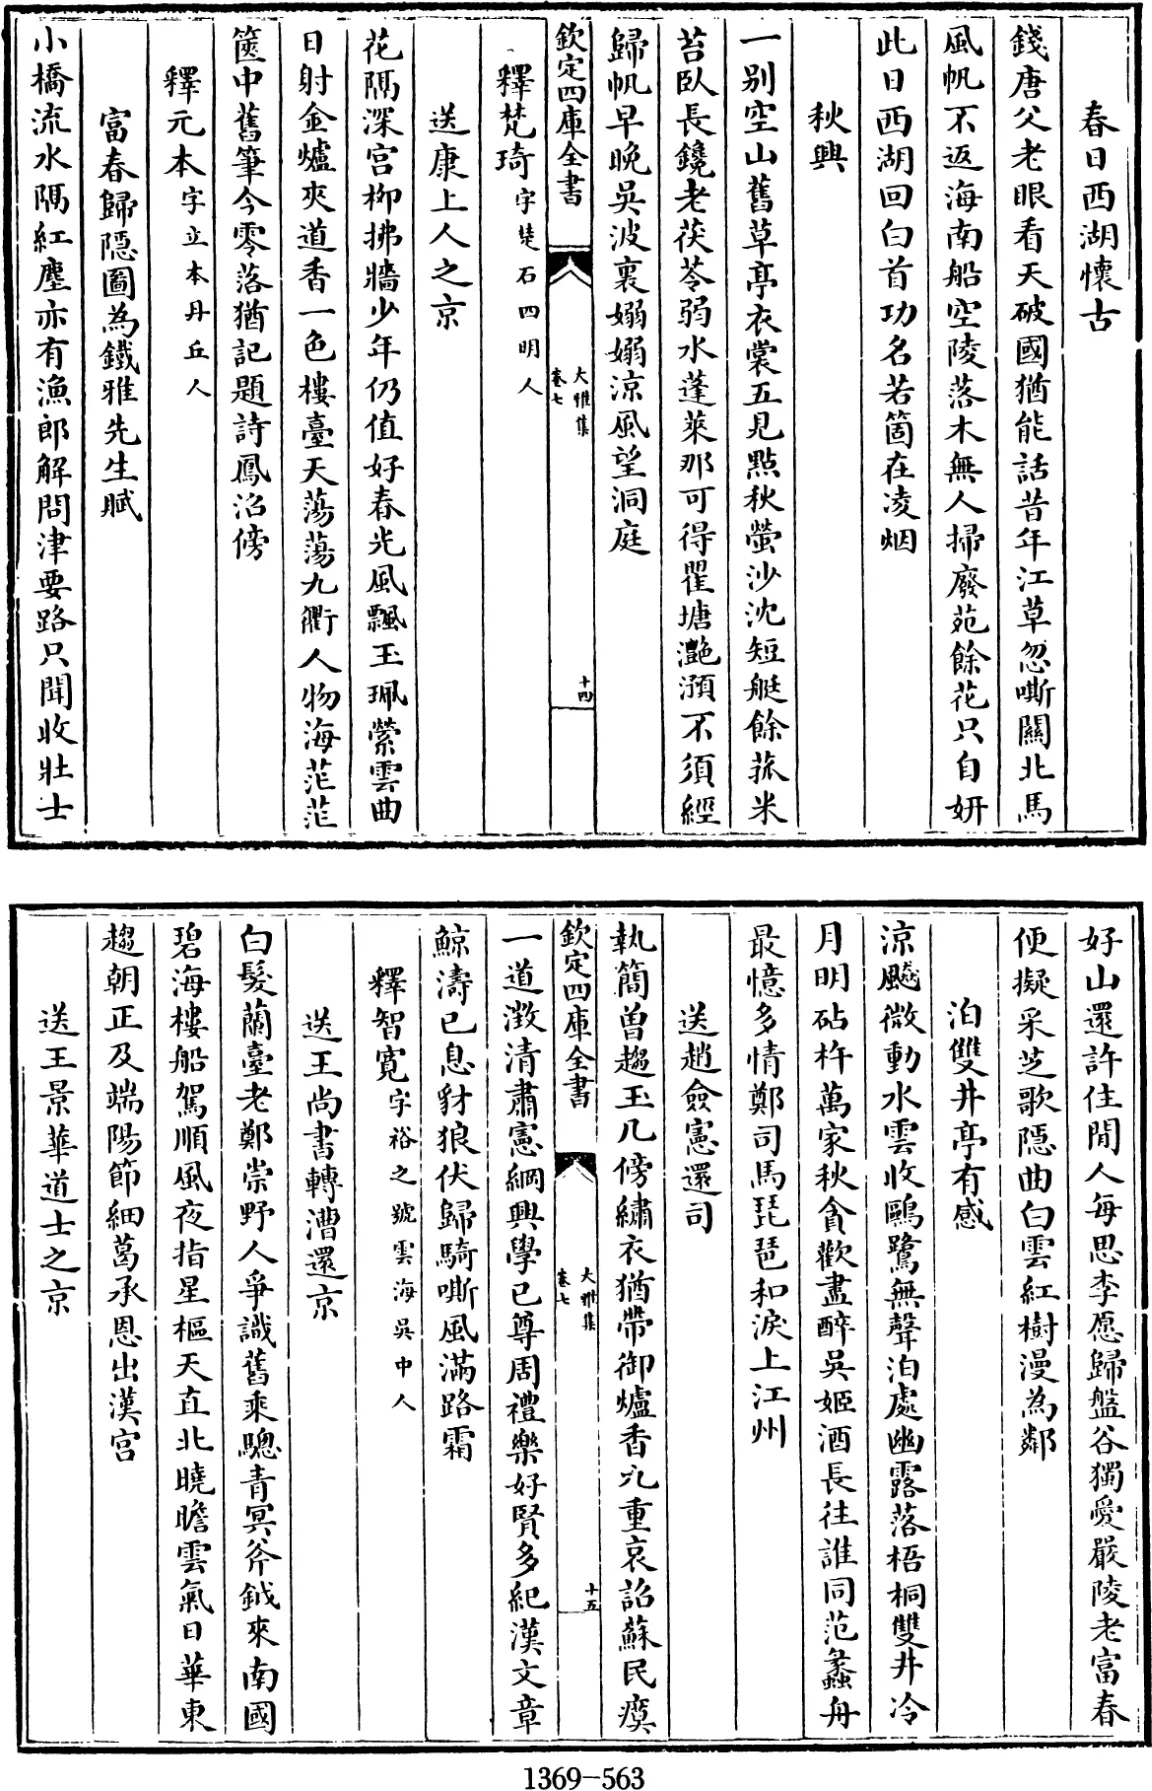 春日西湖懷古
錢唐父老眼看天破國猶能話昔年江草忽嘶關北馬
風帆不返海南船空陵落木無人掃廢苑餘花只自妍
此日西湖回白首功名若箇在凌烟
秋興
一别空山舊草亭衣裳五見點秋螢沙沈短艇餘菰米
苔臥長鑱老茯苓弱水蓬萊那可得瞿塘灔澦不須經
歸帆早晚吳波裏嫋嫋涼風望洞庭
欽定四庫全書
大雅集
卷七
十四
釋梵琦字楚石四明人
送康上人之京
花隅深宫柳拂牆少年仍值好春光風飄玉珮縈雲曲
日射金爐夾道香一色樓臺天蕩蕩九衢人物海茫茫
篋中舊筆今零落猶記題詩鳳沼傍
釋元本字立本丹丘人
富春歸隱圖為鐵雅先生賦
小橋流水隅紅塵亦有漁郎解問津要路只聞收壯士
好山還許住閒人每思李愿歸盤谷獨愛嚴陵老富春
便擬采芝歌隱曲白雲紅樹漫為鄰
泊雙井亭有感
涼颷微動水雲收鷗鷺無聲泊處幽露落梧桐雙井冷
月明砧杵萬家秋貪歡盡醉吳姬酒長往誰同范蠡舟
最憶多情鄭司馬琵琶和淚上江州
送趙僉憲還司
執簡曽趨玉几傍繡衣猶帶御爐香九重哀詔蘇民瘼
欽定四庫全書
大雅集
卷七
十五
一道澂清肅憲綱興學已尊周禮樂好賢多紀漢文章
鯨濤已息豺狼伏歸騎嘶風滿路霜
釋智寛字裕之號雲海吳中人
送王尚書轉漕還京
白髮蘭臺老鄭崇野人爭識舊乘驄青冥斧鉞來南國
碧海樓船駕順風夜指星樞天直北曉瞻雲氣日華東
趨朝正及端陽節細葛承恩出漢宫
送王景華道士之京
1369–563